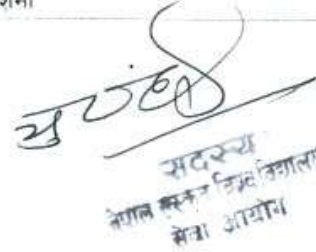 शर्मा
सदस्य
नेपाल संस्कृत विश्वविद्यालय
सेवा आयोग